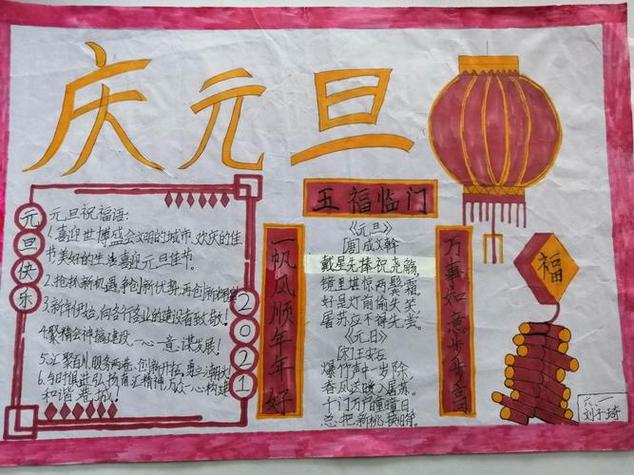 庆元旦
元旦快乐
元旦祝福语:
1.喜迎世博盛会文明的城市、欢庆的佳
节美好的生活喜迎元旦佳节。
2.抢抓新机遇,争创新优势,再创新辉煌
3.新年伊始,向各行各业的建设者致敬!
4.聚精会神搞建设,一心一意谋发展!
5.汇聚百川,服务两港,创新开拓,勇立潮头!
6.与时俱进,弘扬甬汇精神,万众一心,构建
和谐港城!
2021
五福临门
一帆风顺年年好
《元旦》
[唐]成文斡
戴星先捧祝尧觞,
镜里堪惊两鬓霜
好是灯前偷失笑
屠苏应不得先尝。
《元日》
[宋]王安石
爆竹声中一岁除
春风送暖入屠苏。
千门万户曈曈日
总把新桃换旧符。
万事如意步步高
福
六、一
刘子琦